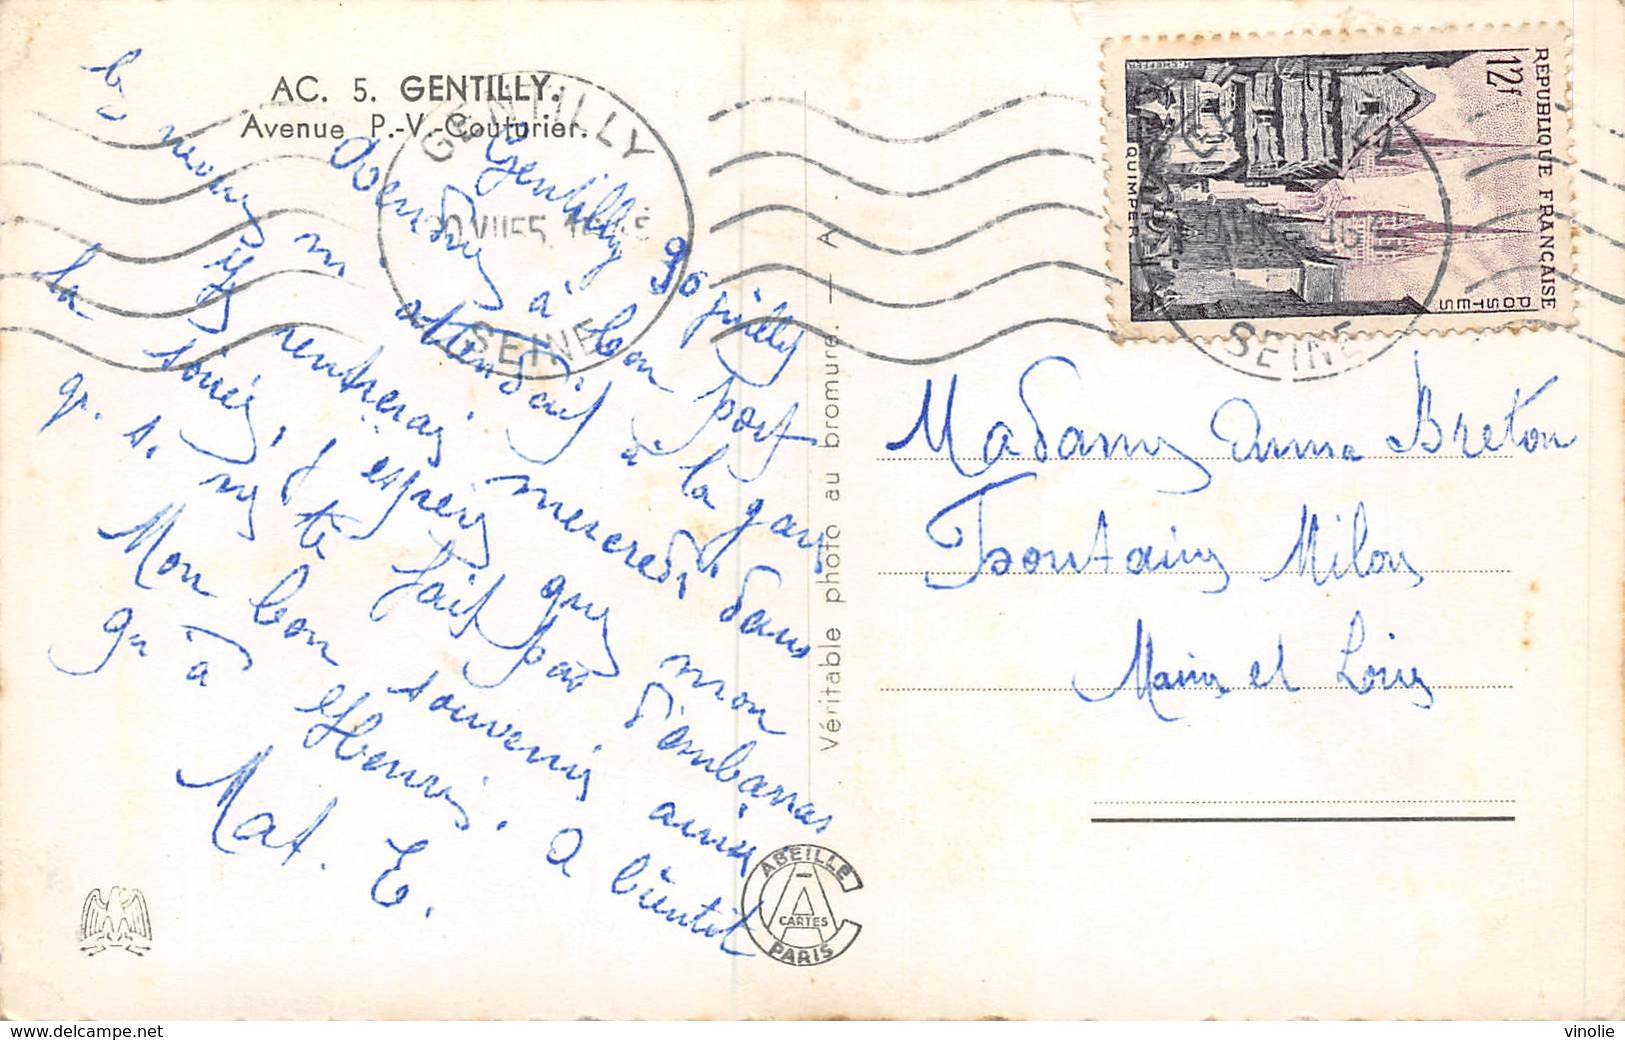 AC. 5. GENTILLY.
Avenue P.-V.-Couturier.
GENTILLY
SEINE
Gentilly 30 juillet
à bon port
le neveu m'attendait à la gare
Je rentrerai mercredi dans
la soirée, j'espère que mon
ne te fait pas d'embarras
Mon bon souvenir ainsi
qu'à Henri. A bientôt
Mat. E.
Véritable photo au bromure. — A
ABEILLE
CARTES
PARIS
REPUBLIQUE FRANÇAISE
POSTES
12f
QUIMPER
SEINE
Madame Anna Breton
Fontaine Milon
Maine et Loire
www.delcampe.net
vinolie